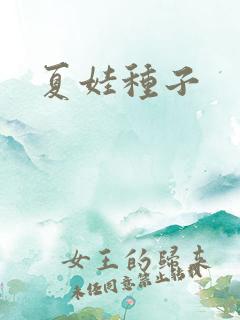 夏娃種子
女王的歸來
未經同意禁止轉載